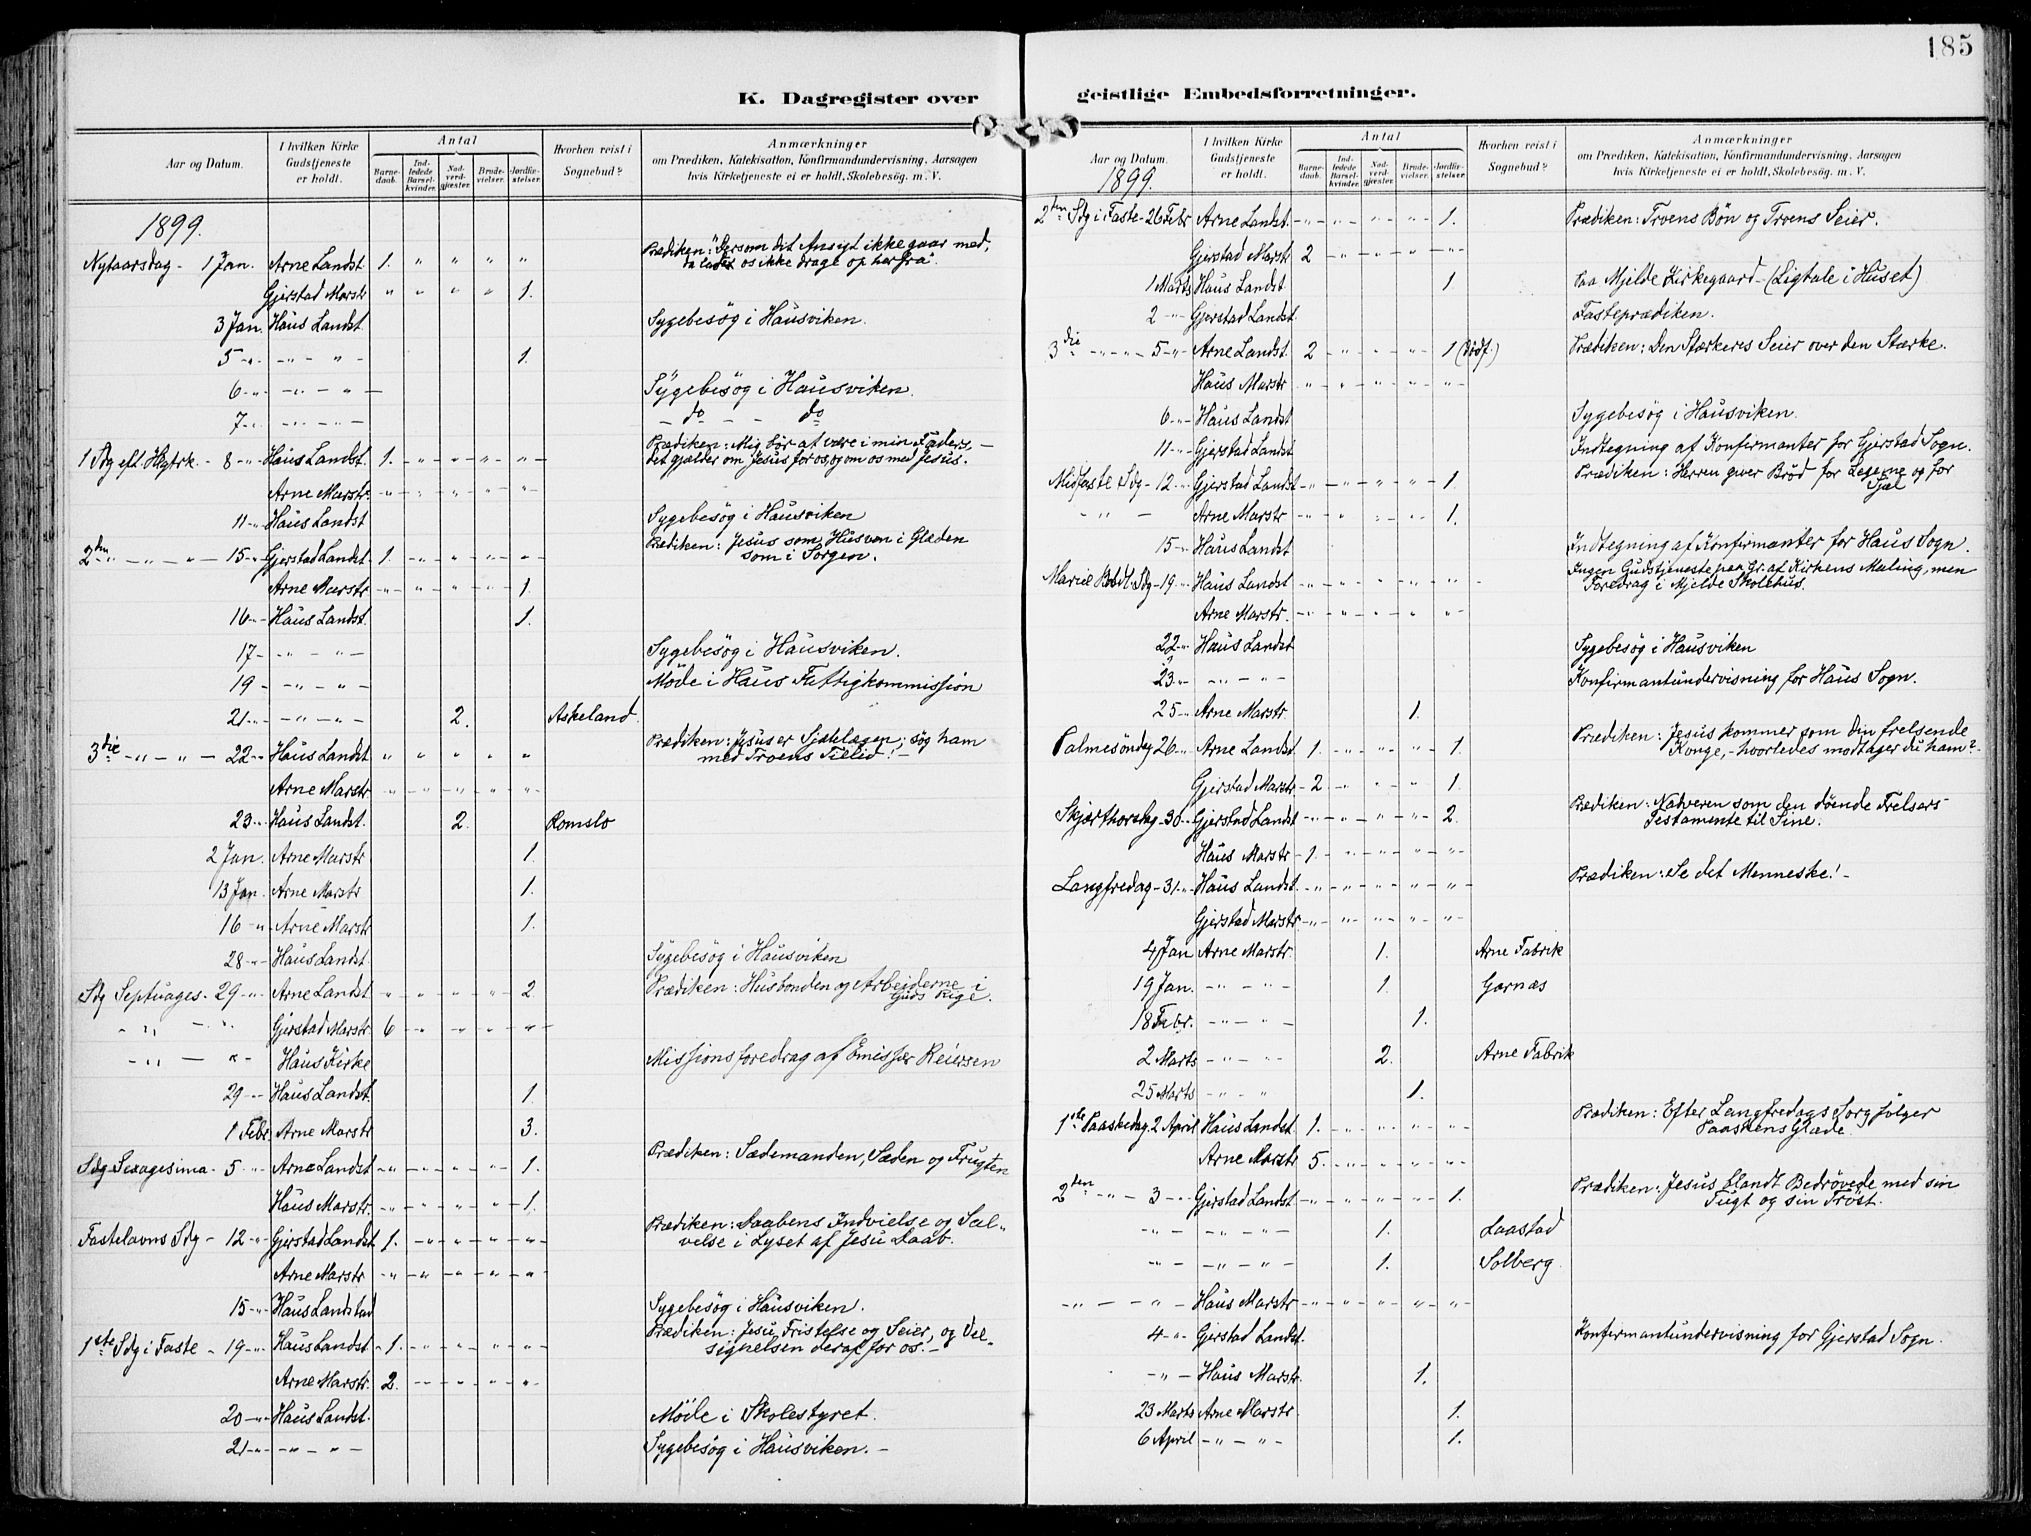 185
K. Dagregister over
geistlige Embedsforretninger.
Aar og Datum. I hvilken Kirke Gudstjeneste er holdt. Antal Barnedaab. Indledede Barselkvinder. Nadverdgjæster. Brudevielser. Jordfæstelser. Hvorhen reist i Sognebud? Anmærkninger om Prædiken, Katekisation, Konfirmandundervisning, Aarsagen hvis Kirketjeneste ei er holdt, Skolebesøg. m. V.
1899.
Nytaarsdag - 1 Jan. Arne Landst. 1. " " " " Prædiken: "Dersom dit Ansigt ikke gaar med,
da lad os ikke drage op herfra".
Gjerstad Marstr " " " " 1.
3 Jan. Haus Landst. Sygebesøg i Hausviken.
5 -"- -"- - " - 1.
6 -"- -"- " - Sygebesøg i Hausviken.
7 -"- -"- " - - do - - do
1 Sdg eft. Hkgtrk. - 8 -"- Haus Landst. 1. - " - " - " - " Prædiken: Mig bør at være i min Faders, -
det gjælder om Jesus for os, og om os med Jesus.
Arne Marstr. - " - " - " - " - "
11 -"- Haus Landst Sygebesøg i Hausviken
2den - " - " - 15 -"- Gjerstad Landst. 1. - " - " - " - " Prædiken: Jesus som Husven i Glæden
som i Sorgen.
Arne Marstr - " - " - " - " - 1.
16 -"- Haus Landst. 1.
17 - - " - " - Sygebesøg i Hausviken.
19 - - " - " - Møde i Haus Fattigkommission
21 -"- - " - " - 2. Askeland
3die - " - " - 22 -"- Haus Landst " " " " " Prædiken: Jesus er Sjælelægen; søg ham
med Troens Tillid! -
Arne Marstr - " - " - " - " - "
23 -"- Haus Landst. 2. Romslo
2 Jan. Arne Marstr 1.
13 Jan. Arne Marstr 1.
16 -"- Arne Marstr 1.
28 -"- Haus Landst. Sygebesøg i Hausviken
Sdg Septuages. - 29 -"- Arne Landst " - " - " - " - 2 Prædiken: Husbonden og Arbeiderne i
Guds Rige.
- " - - " - Gjerstad Marstr. 6 - " - " - " - "
- " - - " - Haus Kirke Missionsforedrag af Emissær Reiersen
29 -"- Haus Landst. 1.
1 Febr. Arne Marstr 3.
Sdg Sexagesima - 5 -"- Arne Landst - " - " - " - " - 1. Prædiken: Sædemanden, Sæden og Frugten
Haus Marstr. - " - " - " - " - 1.
Fastelavns Sdg - 12 -"- Gjerstad Landst 1. - " - " - " - " Prædiken: Daabens Indvielse og Sal-
velse i Lyset af Jesu Daab.
Arne Marstr - " - " - " - " - "
15 -"- Haus Landstad Sygebesøg i Hausviken.
1ste Sdg i Faste - 19 -"- Haus Landst - 1. - " - " - " - " Prædiken: Jesu Fristelse og Seier, og Vel-
signelsen deraf for os. -
Arne Marstr. 2. - " - " - " - "
20 -"- Haus Landst. Møde i Skolestyret.
21 -"- - " - " - Sygebesøg i Hausviken. -
Aar og Datum. I hvilken Kirke Gudstjeneste er holdt. Antal Barnedaab. Indledede Barselkvinder. Nadverdgjæster. Brudevielser. Jordfæstelser. Hvorhen reist i Sognebud? Anmærkninger om Prædiken, Katekisation, Konfirmandundervisning, Aarsagen hvis Kirketjeneste ei er holdt, Skolebesøg. m. V.
1899.
2den Sdg i Faste - 26 Febr Arne Landst. - " - " - " - " - 1. Prædiken: Troens Bøn og Troens Seier.
Gjerstad Marstr 2 - " - " - " - "
1 Marts Haus Landst 1 Paa Mjelde Kirkegaard - (Ligtale i Huset)
2 -"- Gjerstad Landst. Fasteprædiken.
3die - " - " - 5 -"- Arne Landst. 2 - " - " - " - 1 (dødf.) Prædiken: Den Stærkeres Seier over den Stærke.
Haus Marstr - " - " - " - " - "
6 -"- Haus Landst Sygebesøg i Hausviken.
11 -"- Gjerstad Landst. Indtegning af Konfirmanter for Gjerstad Sogn.
Midfaste Sdg - 12 -"- Gjerstad Landst - " - " - " - " - 1. Prædiken: Herren giver Brød for Legeme og for
Sjæl
- " - Arne Marstr - " - " - " - " - 1.
15 -"- Haus Landst Indtegning af Konfirmanter for Haus Sogn.
Mariæ Bebd. Sdg - 19 -"- Haus Landst - " - " - " - " - " Ingen Gudstjeneste paa Gr. af Kirkens Maling, men
Foredrag i Mjelde Skolehus.
Arne Marstr. - " - " - " - " - "
22 -"- Haus Landst Sygebesøg i Hausviken
23 -"- - " - " - Konfirmantundervisning for Haus Sogn.
25 -"- Arne Marstr. 1.
Palmesøndag 26 -"- Arne Landst. 1. - " - " - " - 1. Prædiken: Jesus kommer som din frelsende
Konge, - hvorledes modtager du ham? -
Gjerstad Marstr - 2 - " - " - " - 1.
Skjærthorsdag - 30 -"- Gjerstad Landst - " - " - " - " - 2. Prædiken: Nadveren som den døende Frelsers
Testamente til Sine.
Haus Marstr - 1. - " - " - " - "
Langfredag - 31 -"- Haus Landst. - " - " - " - " - " Prædiken: Se det Menneske! -
Gjerstad Marstr - " - " - " - " - "
4 Jan Arne Marstr. 1. Arne Fabrik
19 Jan. - " - " - 1. Garnæs
18 Febr. - " - " - 1.
2 Marts - " - " - 2. Arne Fabrik
25 Marts - " - " 1.
1ste Paaskedag. 2 April Haus Landst. 1. - " - " - " - " Prædiken: Efter Langfredags Sorg følger
Paaskens Glæde.
Arne Marstr 5. - " - " - " - "
2den - " - 3 -"- Gjerstad Landst. - " - " - " - " - 1. Prædiken: Jesus blandt Bedrøvede med sin
Tugt og sin Trøst.
- " - - " - " - 1. Laastad
- " - - " - " - 1. Solberg
- " - " - Haus Marstr - " - " - " - " - "
4 -"- Gjerstad Landst. Konfirmantundervisning for Gjerstad Sogn.
- " - Haus Marstr. 1.
23 Marts Arne Marstr. 1.
6 April - " - " - 1.